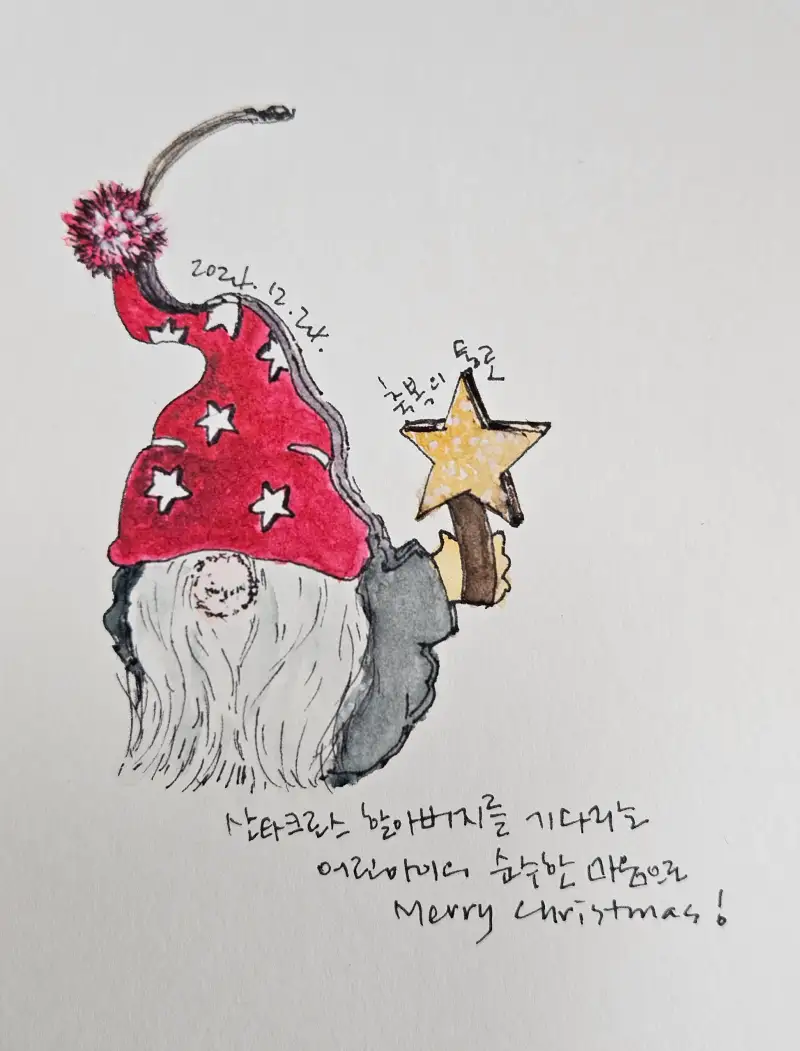 2024. 12. 24.
축복의 통로
산타크로스 할아버지를 기다리는
어린아이의 순수한 마음으로
Merry Christmas!